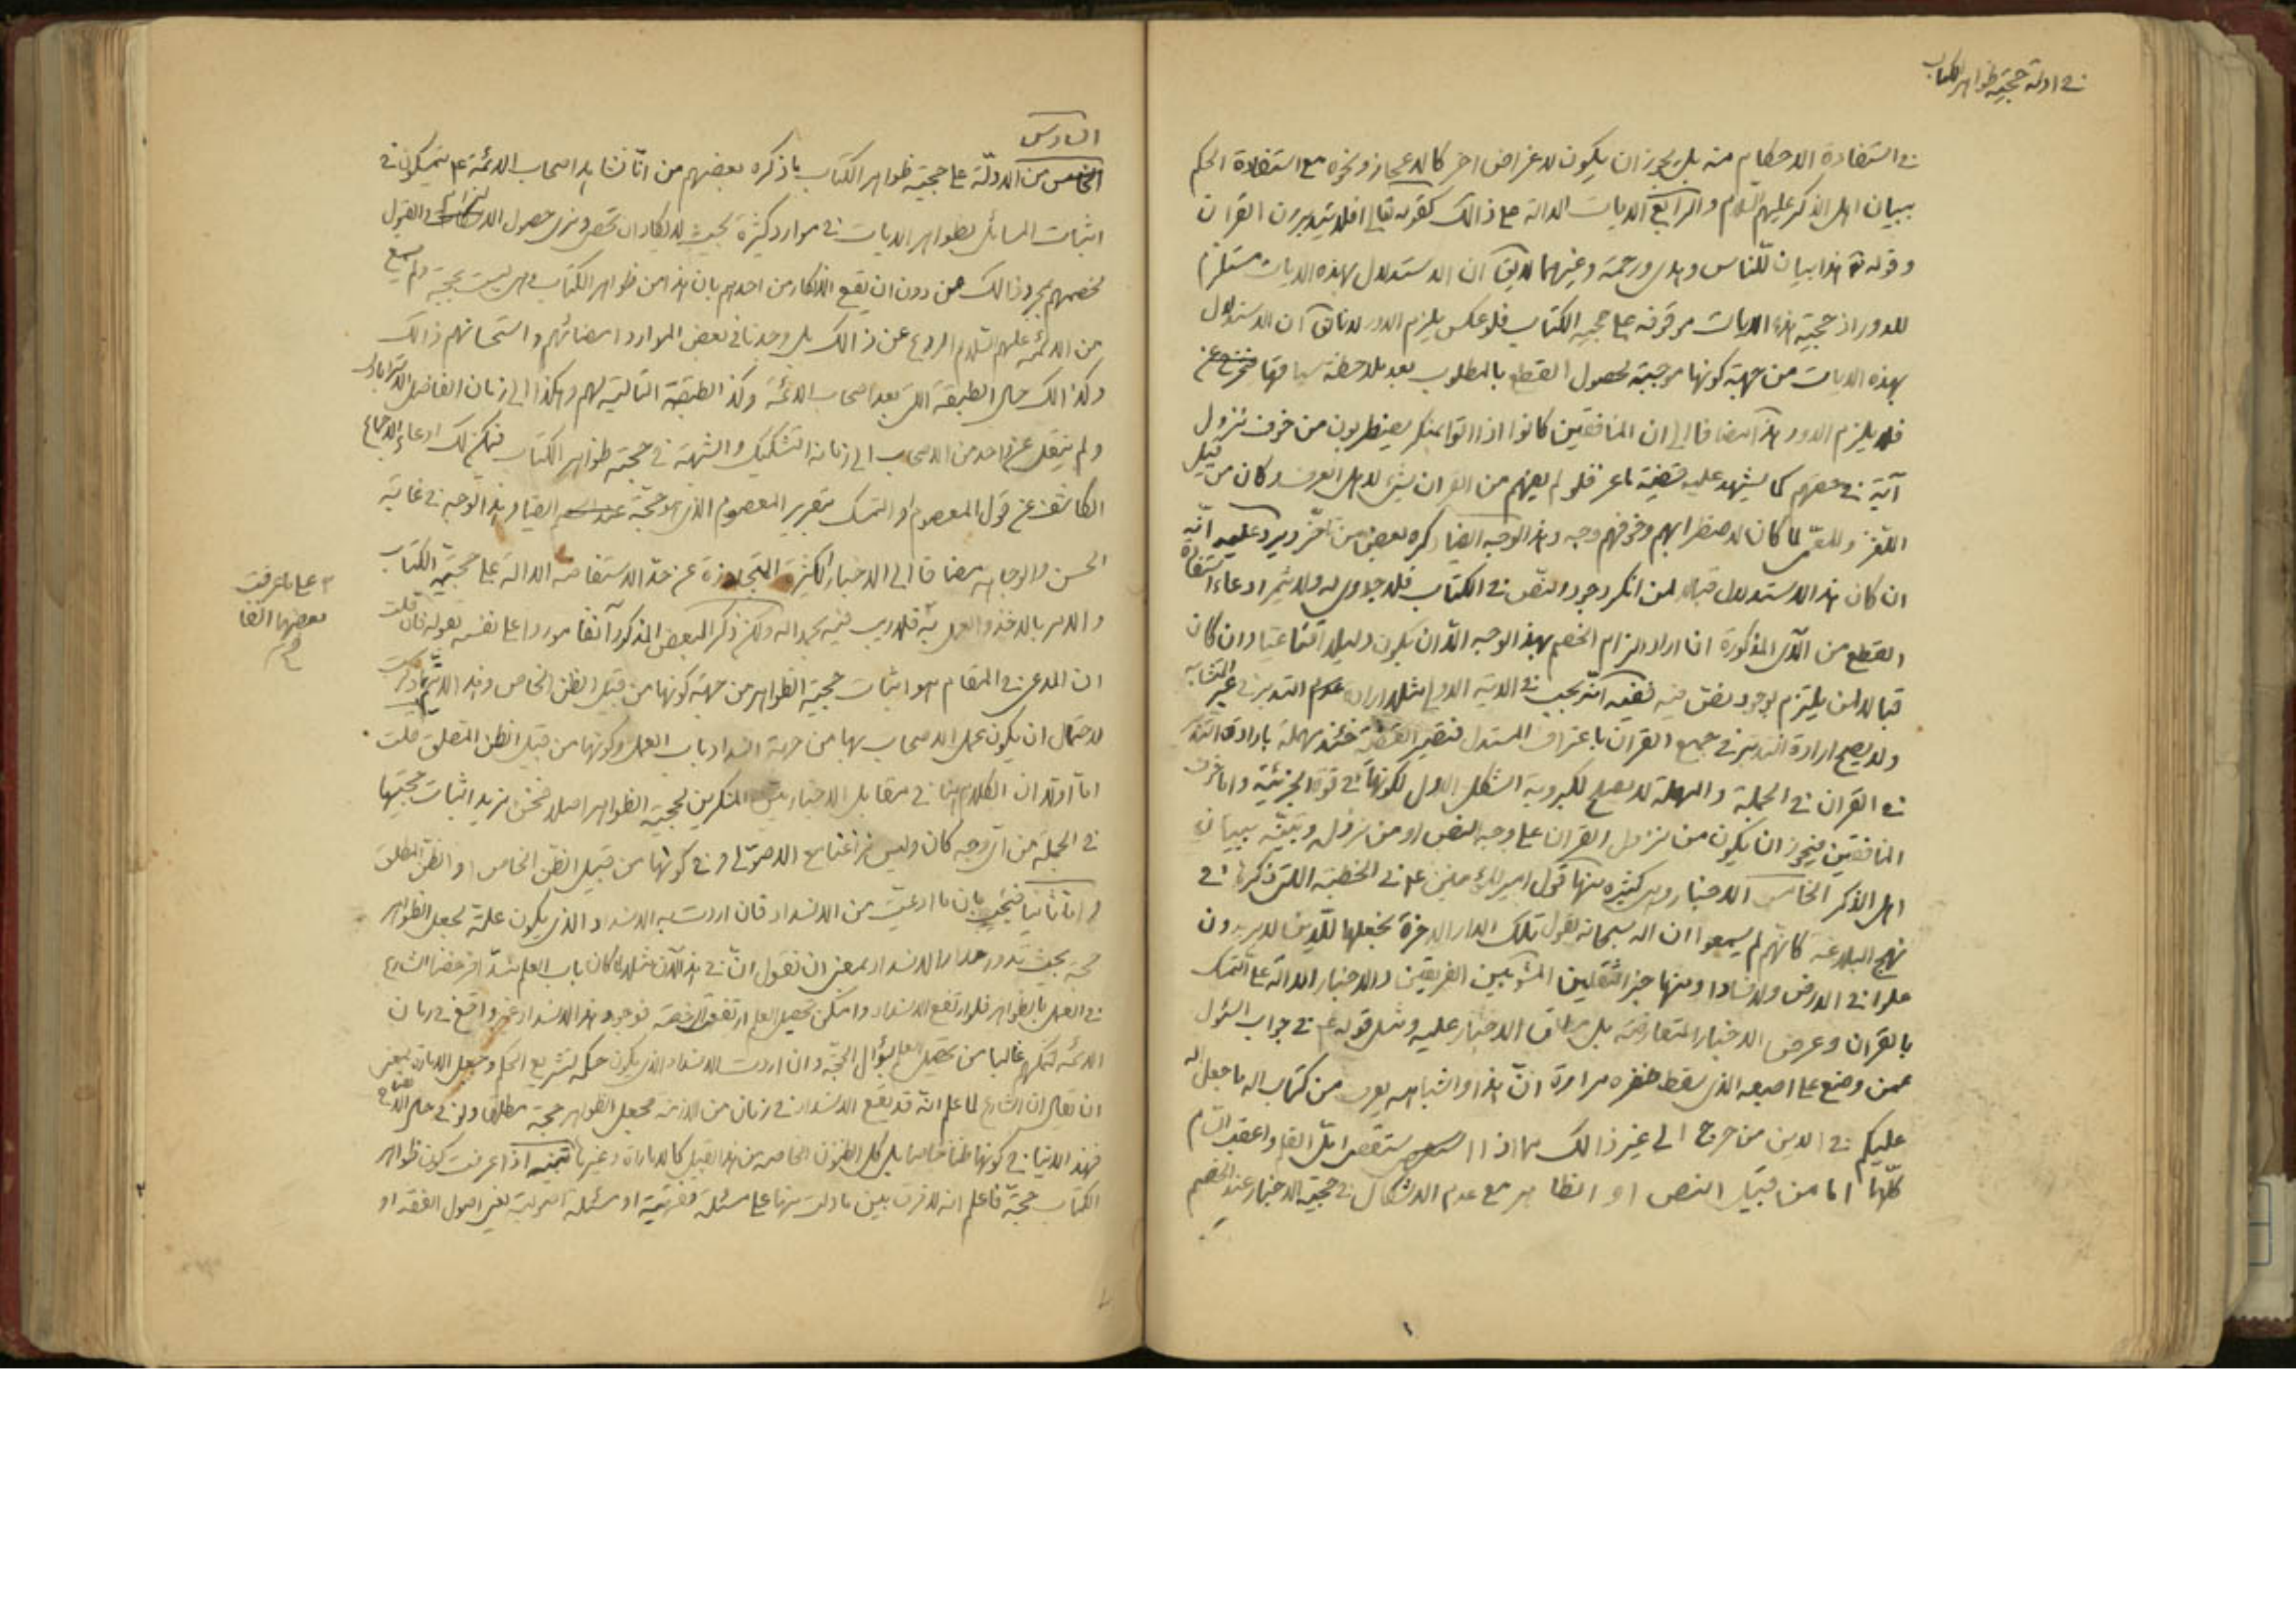 في ادلة حجية ظواهر الكتاب
في استفادة الاحكام منه بل يجوز ان يكون لاغراض اخر كالاعجاز ونحوه مع استفادة الحكم
ببيان اهل الذكر عليهم السلام والرابع الايات الدالة على ذالك كقوله تعالى افلا يتدبرون القران
وقوله تعالى هذا بيان للناس وهدى ورحمة وغيرهما لا يقال ان الاستدلال بهذه الايات مستلزم
للدور اذ حجية هذه الايات موقوفة على حجية الكتاب فلو عكس يلزم الدور لانا نقول ان الاستدلال
بهذه الايات من جهة كونها موجبة لحصول القطع بالمطلوب بعد ملاحظة سياقها
فلا يلزم الدور هذا مضافا الى ان المنافقين كانوا اذا اتوا بمنكر يضطربون من خوف نزول
آية في حقهم كما يشهد عليه قضية ماعز فلو لم يفهم من القران شيء لاهل العرف وكان من قبيل
اللغز والمعمى لما كان لاضطرابهم وخوفهم وجه وهذا الوجه ايضا ذكره بعض من تأخر ويرد عليه انه
ان كان هذا الاستدلال قبالا لمن انكر وجود النص في الكتاب فلا جدوى له ولا يثمر ادعاء استفادة
القطع من الآى المذكورة ان اراد الزام الخصم بهذا الوجه الا ان يكون دليلا اقناعيا وان كان
قبالا لمن يلتزم بوجود نص فيه ففيه انه يجب في الاية الاولى مثلا ارادة التدبر في غير المتشابه
ولا يصح ارادة التدبر في جميع القران باعتراف المستدل فتصير القضية حينئذ مهملة بارادة التدبر
في القران في الجملة والمهملة لا يصلح لكبروية الشكل الاول لكونها في قوة الجزئية واما خوف
المنافقين فيجوز ان يكون من نزول القران على وجه النص او من نزوله وتبيينه ببيان
اهل الذكر الخامس الاخبار وهى كثيرة منها قول امير المؤمنين ع في الخطبة اللتى ذكرها في
نهج البلاغة كانهم لم يسمعوا ان الله سبحانه يقول تلك الدار الاخرة نجعلها للذين لا يريدون
علوا في الارض ولا فسادا ومنها خبر الثقلين المروي بين الفريقين والاخبار الدالة على التمسك
بالقران وعرض الاخبار المتعارضة بل مطلق الاخبار عليه ومثل قوله ع في جواب السئول
عمن وضع على اصبعه الذى سقط ظفره مرارة ان هذا واشباهه يعرف من كتاب الله ما جعل الله
عليكم في الدين من حرج الى غير ذالك مما اذا ستقصى اتل القلم واعقب السأم
كلها اما من قبيل النص او الظاهر مع عدم الاشكال في حجية الاخبار عند الخصم
السادس
من الادلة على حجية ظواهر الكتاب ما ذكره بعضهم من انا نشاهد اصحاب الائمة ع يتمسكون في
اثبات المسائل بظواهر الايات في موارد كثيرة بحيث لا يكاد ان تحصى ونرى حصول الالتزام والقبول
لخصمهم بمجرد ذالك من دون ان يقع الانكار من احدهم بان هذا من ظواهر الكتاب وهى ليست بحجة ولم يسمع
من الائمة عليهم السلام الردع عن ذالك بل وجدنا في بعض الموارد امضائهم واستحسانهم ذالك
وكذالك حال الطبقة اللتى بعد اصحاب الائمة وكذا الطبقة التالية لهم وهكذا الى زمان الفاضل الاسترابادى
ولم ينقل عن احد من الاصحاب الى زمانه التشكيك والشبهة في حجية ظواهر الكتاب فيمكن لك ادعاء الاجماع
الكاشف عن قول المعصوم او التمسك بتقرير المعصوم الذى هو حجة ايضا وهذا الوجه في غاية
الحسن والوجاهة مضافا الى الاخبار الكثيرة المتجاوزة عن حد الاستفاضة الدالة على حجية الكتاب
والامر بالاخذ والعمل به فلا ريب فيه بحمد الله ولكن ذكر البعض المذكور آنفا موردا على نفسه بقوله فان قلت
ان المدعى في المقام هو اثبات حجية الظواهر من جهة كونها من قبيل الظن الخاص وهذا لا يتم بما ذكرت
لاحتمال ان يكون عمل الاصحاب بها من جهة انسداد باب العلم وكونها من قبيل الظن المطلق قلت
اما اولا ان الكلام هنا في مقابل الاخباريين المنكرين لحجية الظواهر اصلا فنحن نريد اثبات حجيتها
في الجملة من اى وجه كان وليس نزاعنا مع الاصولى في كونها من قبيل الظن الخاص او الظن المطلق
واما ثانيا فنجيب بان ما ادعيت من الانسداد فان اردت به الانسداد الذى يكون علة لجعل الظواهر
حجة بحيث تدور مدار الانسداد بمعنى ان نقول ان في هذا الان مثلا لما كان باب العلم منسدا فرخصنا الشارع
في العمل بالظواهر فلو ارتفع الانسداد وامكن تحصيل العلم ارتفع الرخصة فوجود هذا الانسداد غير واقع في زمان
الائمة لتمكنهم غالبا من تحصيل العلم بسؤال الحجة وان اردت الانسداد الذى يكون حكمة لتشريع الحكم وجعل الامارة بمعنى
ان يقال ان الشارع لما علم انه قد يقع الانسداد في زمان من الازمنة فجعل الظواهر حجة مطلقا ولو في حال الانفتاح
فهذا لا ينافي كونها ظنا خاصا بل كل الظنون الخاصة من هذا القبيل كالامارات وغيرها تنبيه اذا عرفت كون ظواهر
الكتاب حجة فاعلم انه لا فرق بين ما دلت منها على مسئلة فقهية او مسئلة اصولية يعنى اصول الفقه او
على ما عرفت
بعضها آنفا